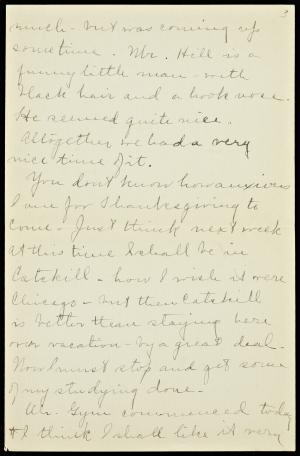 3
much - but was coming up
sometime. Mr. Hill is a
funny little man - with
black hair and a hook nose.
He seemed quite nice.
Altogether we had a very
nice time of it.
You don't know how anxious
I am for Thanksgiving to
come - Just think next week
at this time I shall be in
Catskill - how I wish it were
Chicago - but then Catskill
is better than staying here
over vacation - by a great deal -
Now I must stop and get some
of my studying done -
Gym commenced today
& I think I shall like it very